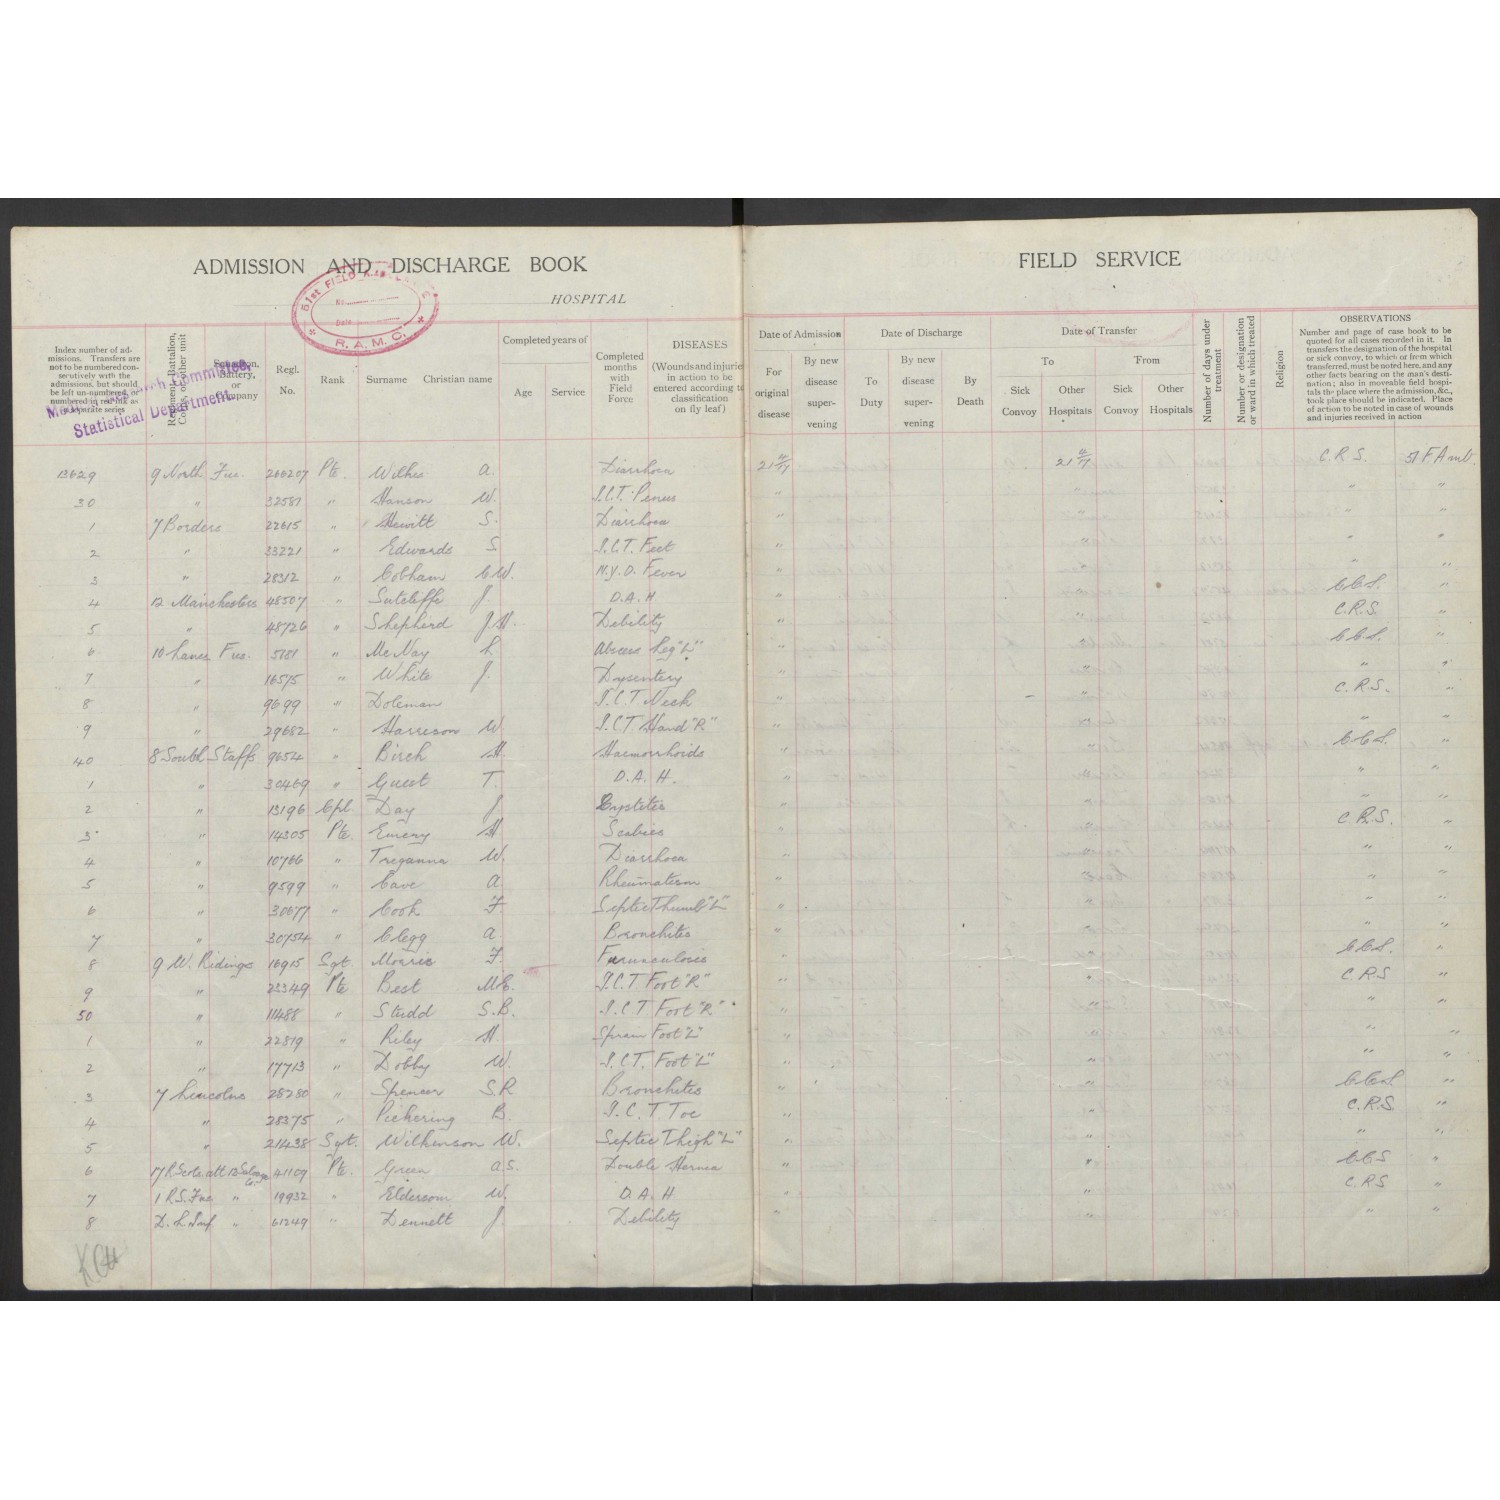 ADMISSION AND DISCHARGE BOOK
FIELD SERVICE
HOSPITAL
51st FIELD
No.
Date
R. A. M. C.
Statistical Department.
Index number of admissions. Transfers are not to be numbered consecutively with the admissions, but should be left un-numbered, or numbered in red ink as a separate series
Regiment, Battalion, Corps, or other unit
Squadron, Battery, or Company
Regl. No.
Rank
Surname
Christian name
Completed years of
Age
Service
Completed months with Field Force
DISEASES
(Wounds and injuries in action to be entered according to classification on fly leaf)
Date of Admission
For original disease
By new disease supervening
Date of Discharge
To Duty
By new disease supervening
By Death
Date of Transfer
To
Sick Convoy
Other Hospitals
From
Sick Convoy
Other Hospitals
Number of days under treatment
Number or designation or ward in which treated
Religion
OBSERVATIONS
Number and page of case book to be quoted for all cases recorded in it. In transfers the designation of the hospital or sick convoy, to which or from which transferred, must be noted here, and any other facts bearing on the man's destination; also in moveable field hospitals the place where the admission, &c., took place should be indicated. Place of action to be noted in case of wounds and injuries received in action
13629 9 North Fus. 266207 Pte. Wilkes A. Diarrhoea 21 C.R.S. 51 F Amb.
30 " 32581 " Hanson W. I.C.T. Penus " " " "
1 7 Borders 22615 " Hewitt S. Diarrhoea " " " "
2 " 33221 " Edwards S. I.C.T. Feet " " " "
3 " 28312 " Cobham C W. N.Y.D. Fever " " " "
4 12 Manchesters 48507 " Sutcliffe J. D.A.H " " C.C.S. "
5 " 48726 " Shepherd J H. Debility " " C.R.S. "
6 10 Lancs Fus. 5181 " McNay L. Abscess Leg "L" " " C.C.S. "
7 " 16515 " White J. Dysentery " " " "
8 " 9699 " Doleman I.C.T Neck " " C.R.S. "
9 " 29682 " Harrison W I.C.T Hand "R" " " " "
40 8 South Staffs 9654 " Birch H. Haemorrhoids " " C.C.S. "
1 " 30469 " Guest T. D.A.H. " " " "
2 " 13196 Cpl. Day J Cystitis " " " "
3 " 14305 Pte. Emery H. Scabies " " C.R.S. "
4 " 10766 " Treganna W. Diarrhoea " " " "
5 " 9599 " Cave A Rheumatism " " " "
6 " 30677 " Cook F Septic Thumb "L" " " " "
7 " 30754 " Clegg A. Bronchitis " " " "
8 9 W. Ridings 16915 Sgt. Morris F. Furunculosis " " C.C.S. "
9 " 23349 Pte Best M.E. I.C.T Foot "R" " " C.R.S "
50 " 11488 " Studd S.B. I.C.T Foot "R" " " " "
1 " 22819 " Riley H. Sprain Foot "L" " " " "
2 " 17713 " Dobby W. I.C.T. Foot "L" " " " "
3 7 Lincolns 28280 " Spencer S R Bronchitis " " C.C.S "
4 " 28375 " Pickering B. I.C.T Toe " " C.R.S. "
5 " 21438 Sgt. Wilkinson W. Septic Thigh "L" " " " "
6 17 R Scots att 12 Salvage Co. 41109 Pte. Green A S. Double Hernia " " C.C.S "
7 1 R.S. Fus " 19932 " Eldersom W. D.A.H " " C.R.S "
8 D.L. Inf " 61249 " Dennett J. Debility " " " "